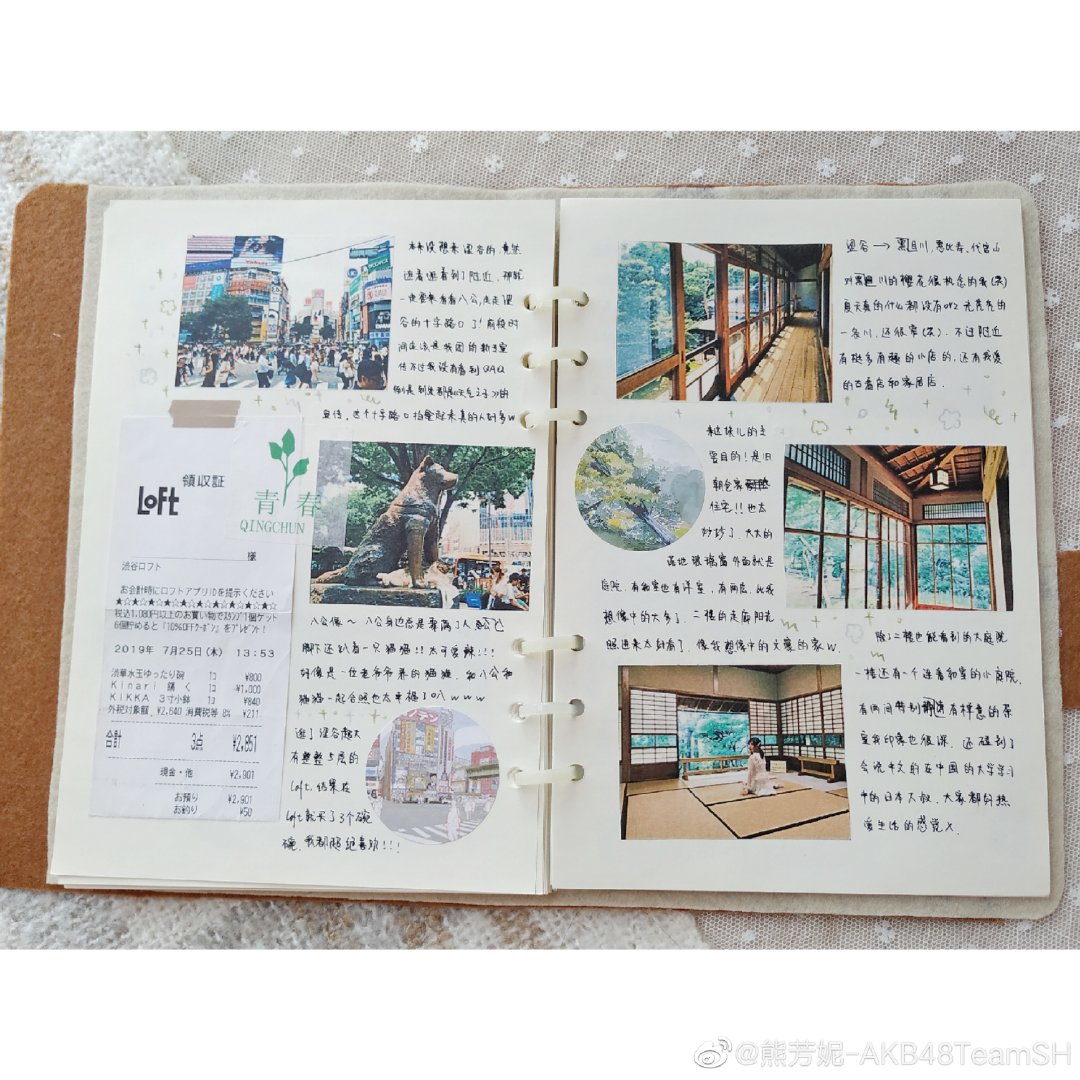 本来没想来涩谷的,竟然
逛着逛着到了附近,那就
一定要来看看八公,走走涩
谷的十字路口了!前段时
间应该是我团的新专宣
传不过我没有看到QAQ
倒是到处都是《天气之子》的
宣传,这个十字路口拍壁际来真的人好多w
領収証
LoFt
様
渋谷ロフト
お会計時にロフトアプリIDを提示ください
★☆★☆★☆★☆★☆★☆★☆★☆★☆
税込1,080円以上のお買い物でスタンプ1個ゲット
6個貯めると「10%OFFクーポン」をプレゼント!
2019年 7月25日(木) 13:53
渋華氷玉ゆったり碗 1コ ¥800
Kinari 鎬 く 1コ ¥1,000
KIKKA 3寸小鉢 1コ ¥840
外税対象額 ¥2,640 消費税等 8% ¥211
合計 3点 ¥2,851
現金・他 ¥2,901
お預り ¥2,901
お釣り ¥50
青春
QINGCHUN
八公像~ 八公身边总是靠满了人
脚下还趴着一只猫猫!!太可爱辣!!!
好像是一位老爷爷养的猫猫,和八公和
猫猫一起合照也太幸福了叭www
逛了涩谷超大
有整整5层的
Loft,结果在
Loft就买了3个碗
碗,我都超级喜欢!!!
涩谷→目黑川、惠比寿、代官山
对目黑川的樱花很执念的我(哭)
夏天真的什么都没有orz 光秃秃的
一条川,还很窄(哭),不过附近
有挺多有趣的小店的,还有我爱
的古着店和家居店.
来这块儿的主
要目的!是旧
朝仓家
住宅!!也太
妙妙了,大大的
落地玻璃窗外面就是
庭院,有和室也有洋室,有两层,比我
想像中的大多了,二楼的走廊阳光
照进来太好看了,像我想像中的文豪的家w.
除了二楼也能看到的大庭院
一楼还有一个连着和室的小庭院,
有两间特别有禅意的茶
室我印象也很深,还碰到了
会说中文的在中国的大学学习
中的日本大叔,大家都好热
爱生活的感觉x.
@熊芳妮-AKB48TeamSH